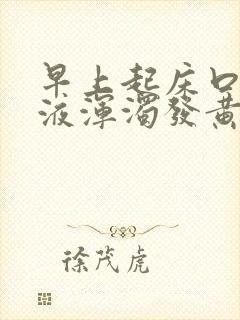 早上起床口
液渾濁發黃
徐茂虎